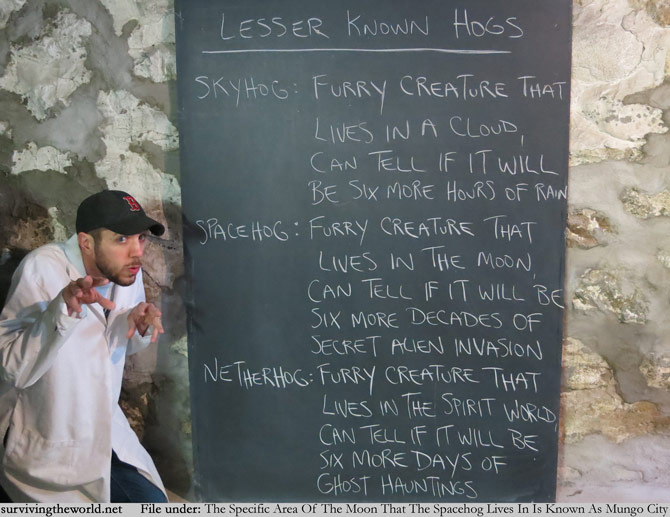 LESSER KNOWN HOGS
SKYHOG: FURRY CREATURE THAT
LIVES IN A CLOUD,
CAN TELL IF IT WILL
BE SIX MORE HOURS OF RAIN
SPACEHOG: FURRY CREATURE THAT
LIVES IN THE MOON,
CAN TELL IF IT WILL BE
SIX MORE DECADES OF
SECRET ALIEN INVASION
NETHERHOG: FURRY CREATURE THAT
LIVES IN THE SPIRIT WORLD,
CAN TELL IF IT WILL BE
SIX MORE DAYS OF
GHOST HAUNTINGS
B
survivingtheworld.net File under: The Specific Area Of The Moon That The Spacehog Lives In Is Known As Mungo City